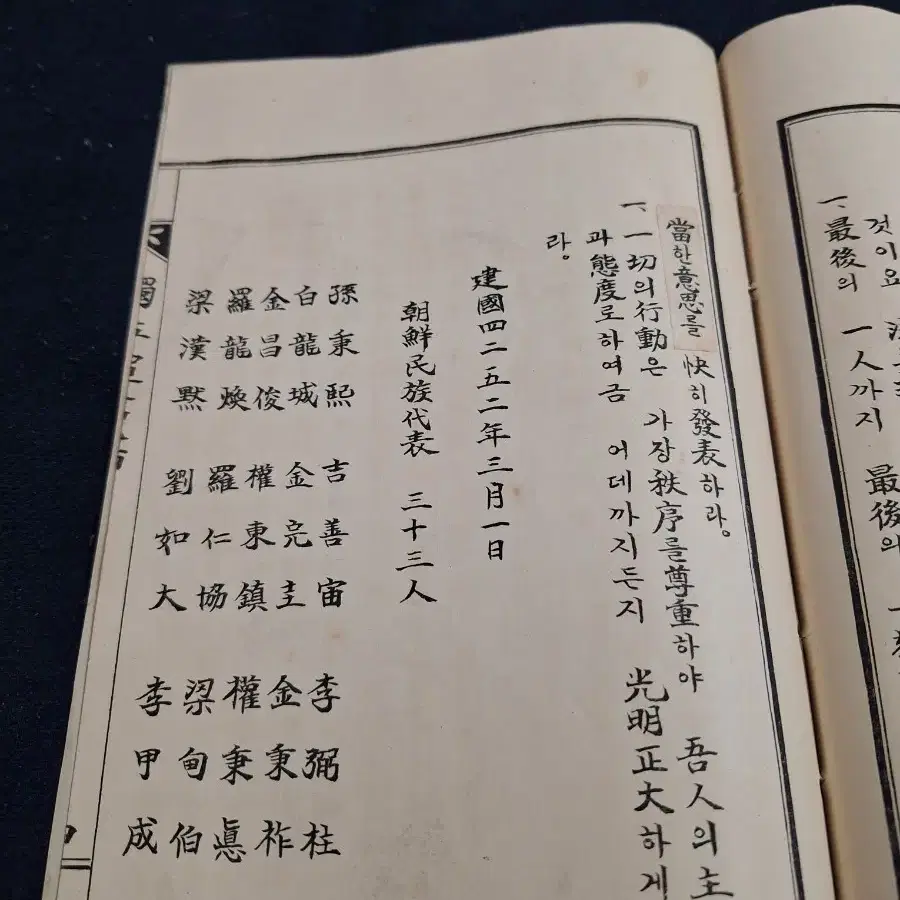 것이요
一、最後의 一人까지 最後의 一
當한意思를 快히發表하라。
一、一切의行動은 가장秩序를尊重하야 吾人의主
과態度로하여금 어데까지든지 光明正大하게
라。
建國四二五二年三月一日
朝鮮民族代表 三十三人
孫秉熙 吉善宙 李弼柱
白龍城 金完圭 金秉祚
金昌俊 權東鎮 權秉悳
羅龍煥 羅仁協 梁甸伯
梁漢默 劉如大 李甲成